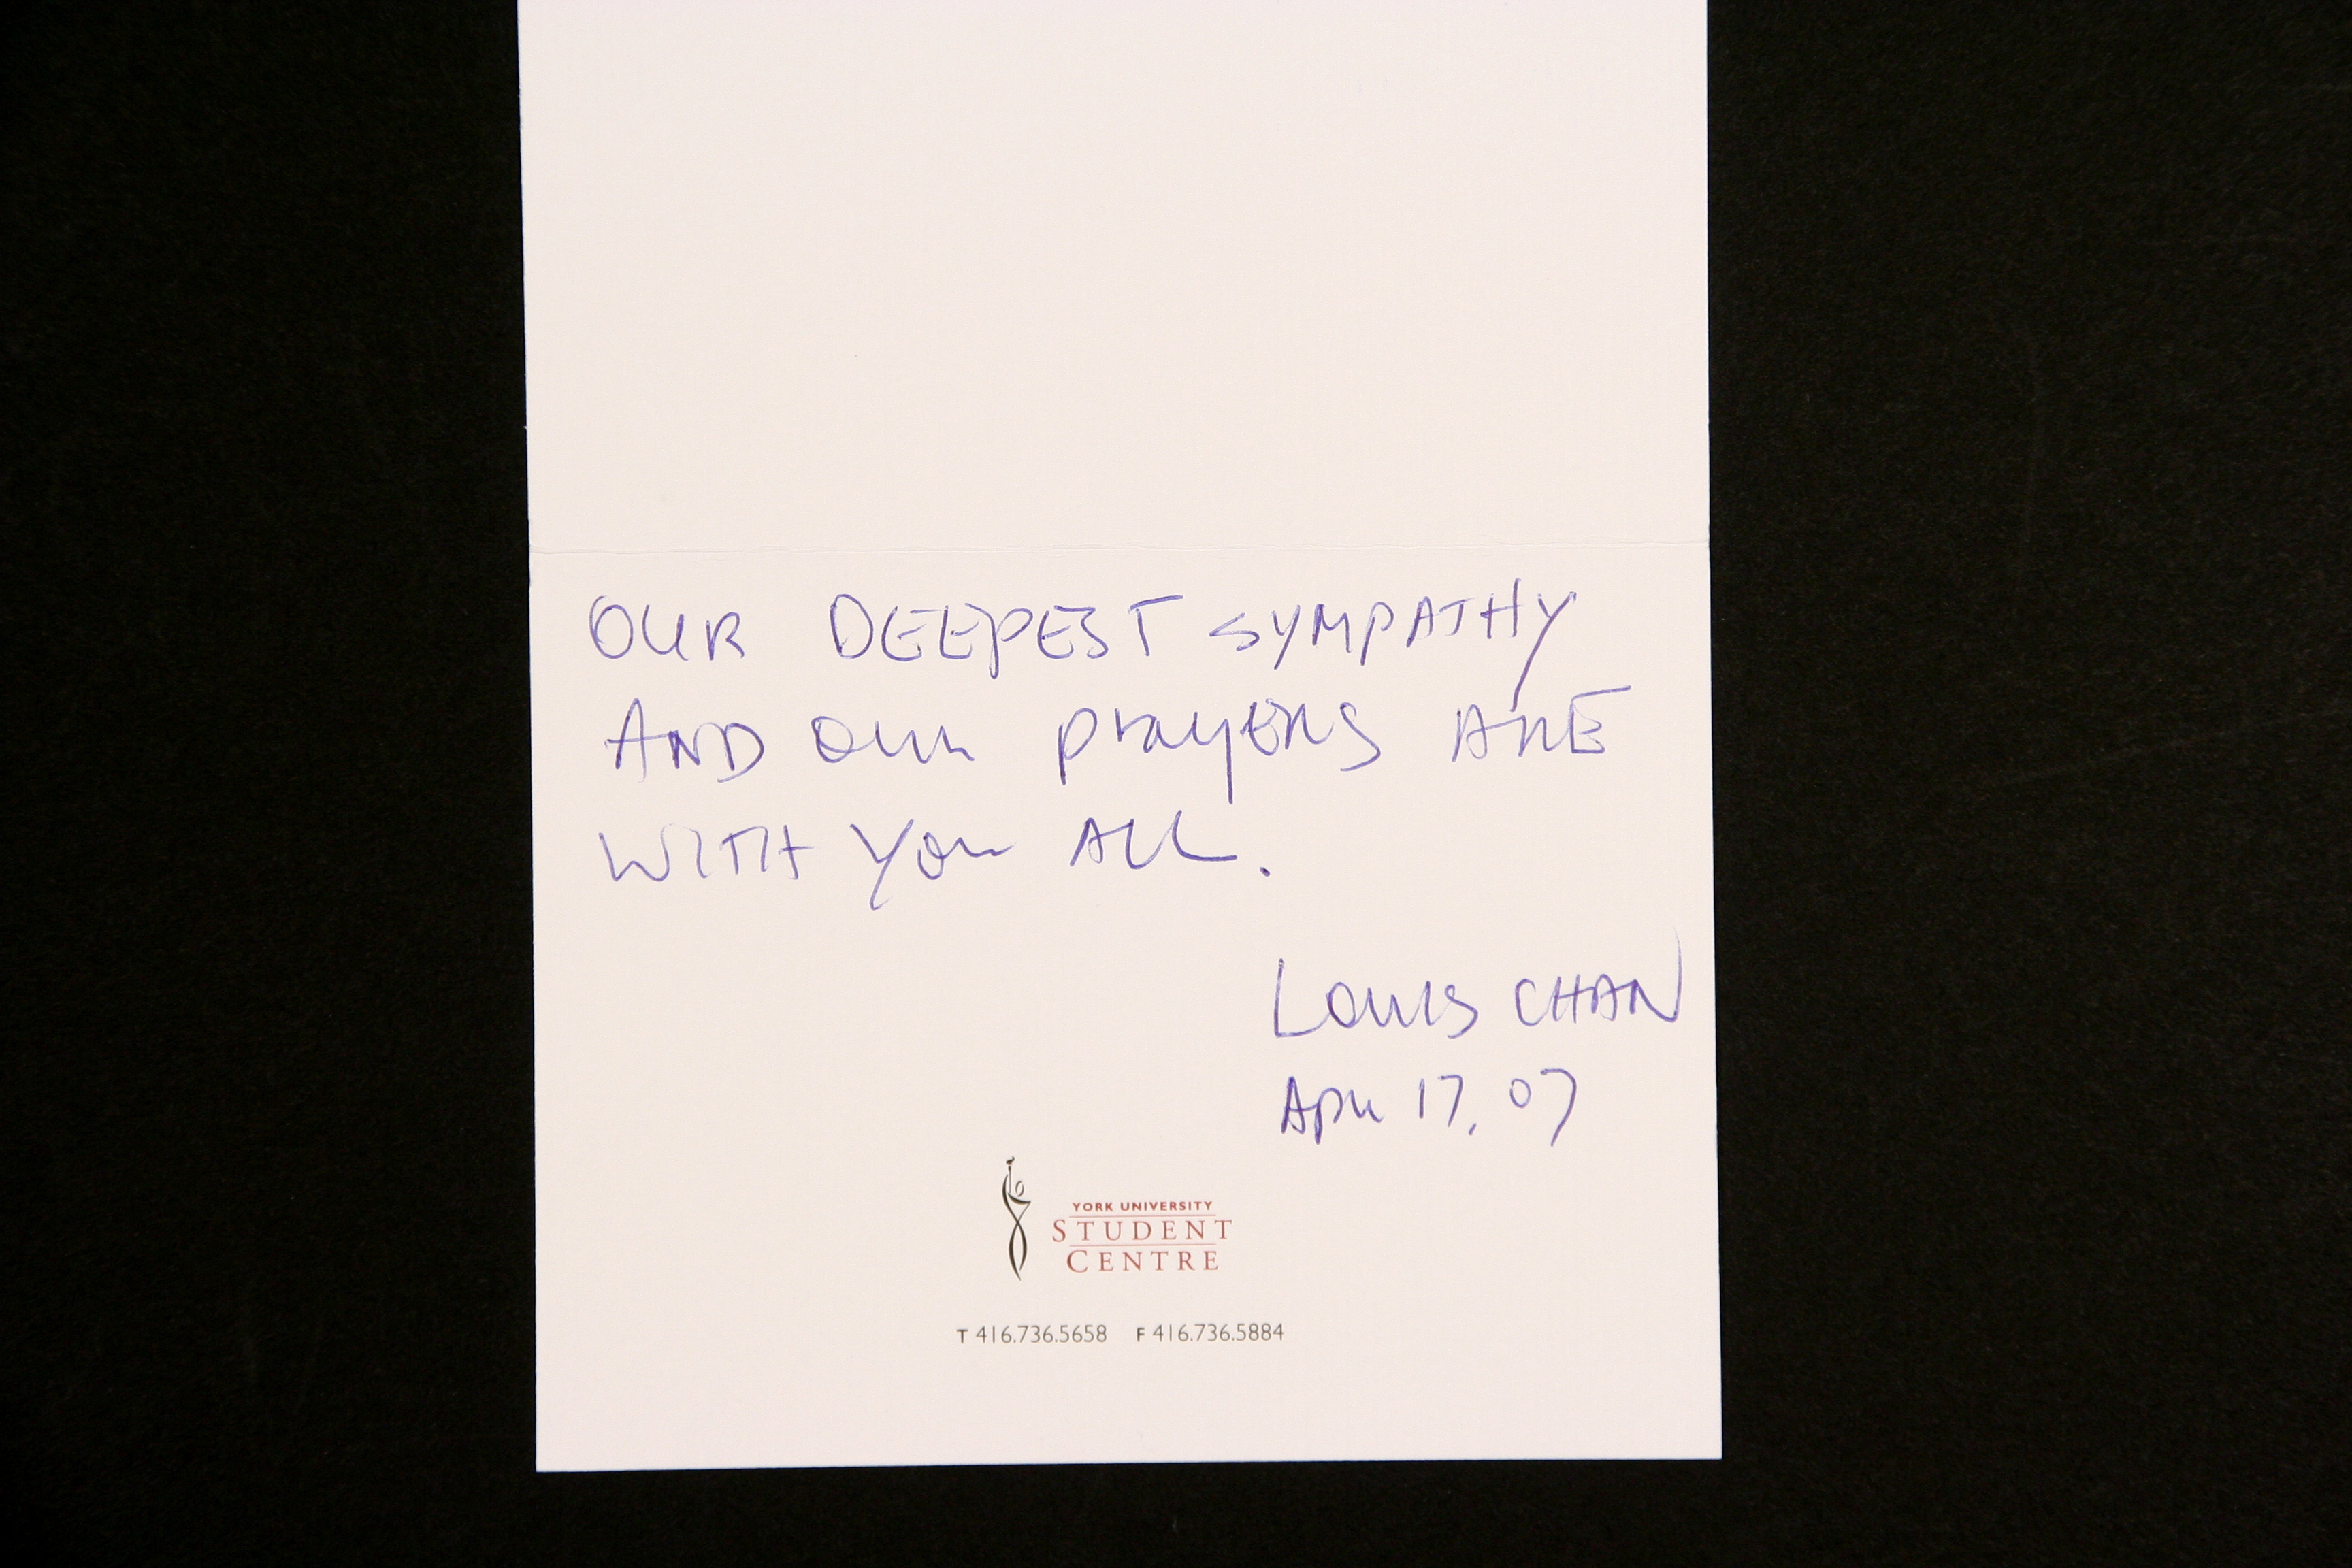 OUR DEEPEST SYMPATHY
AND OUR PRAYERS ARE
WITH YOU ALL.
LOUIS CHAN
APR 17, 07
YORK UNIVERSITY
STUDENT
CENTRE
T 416.736.5658 F 416.736.5884